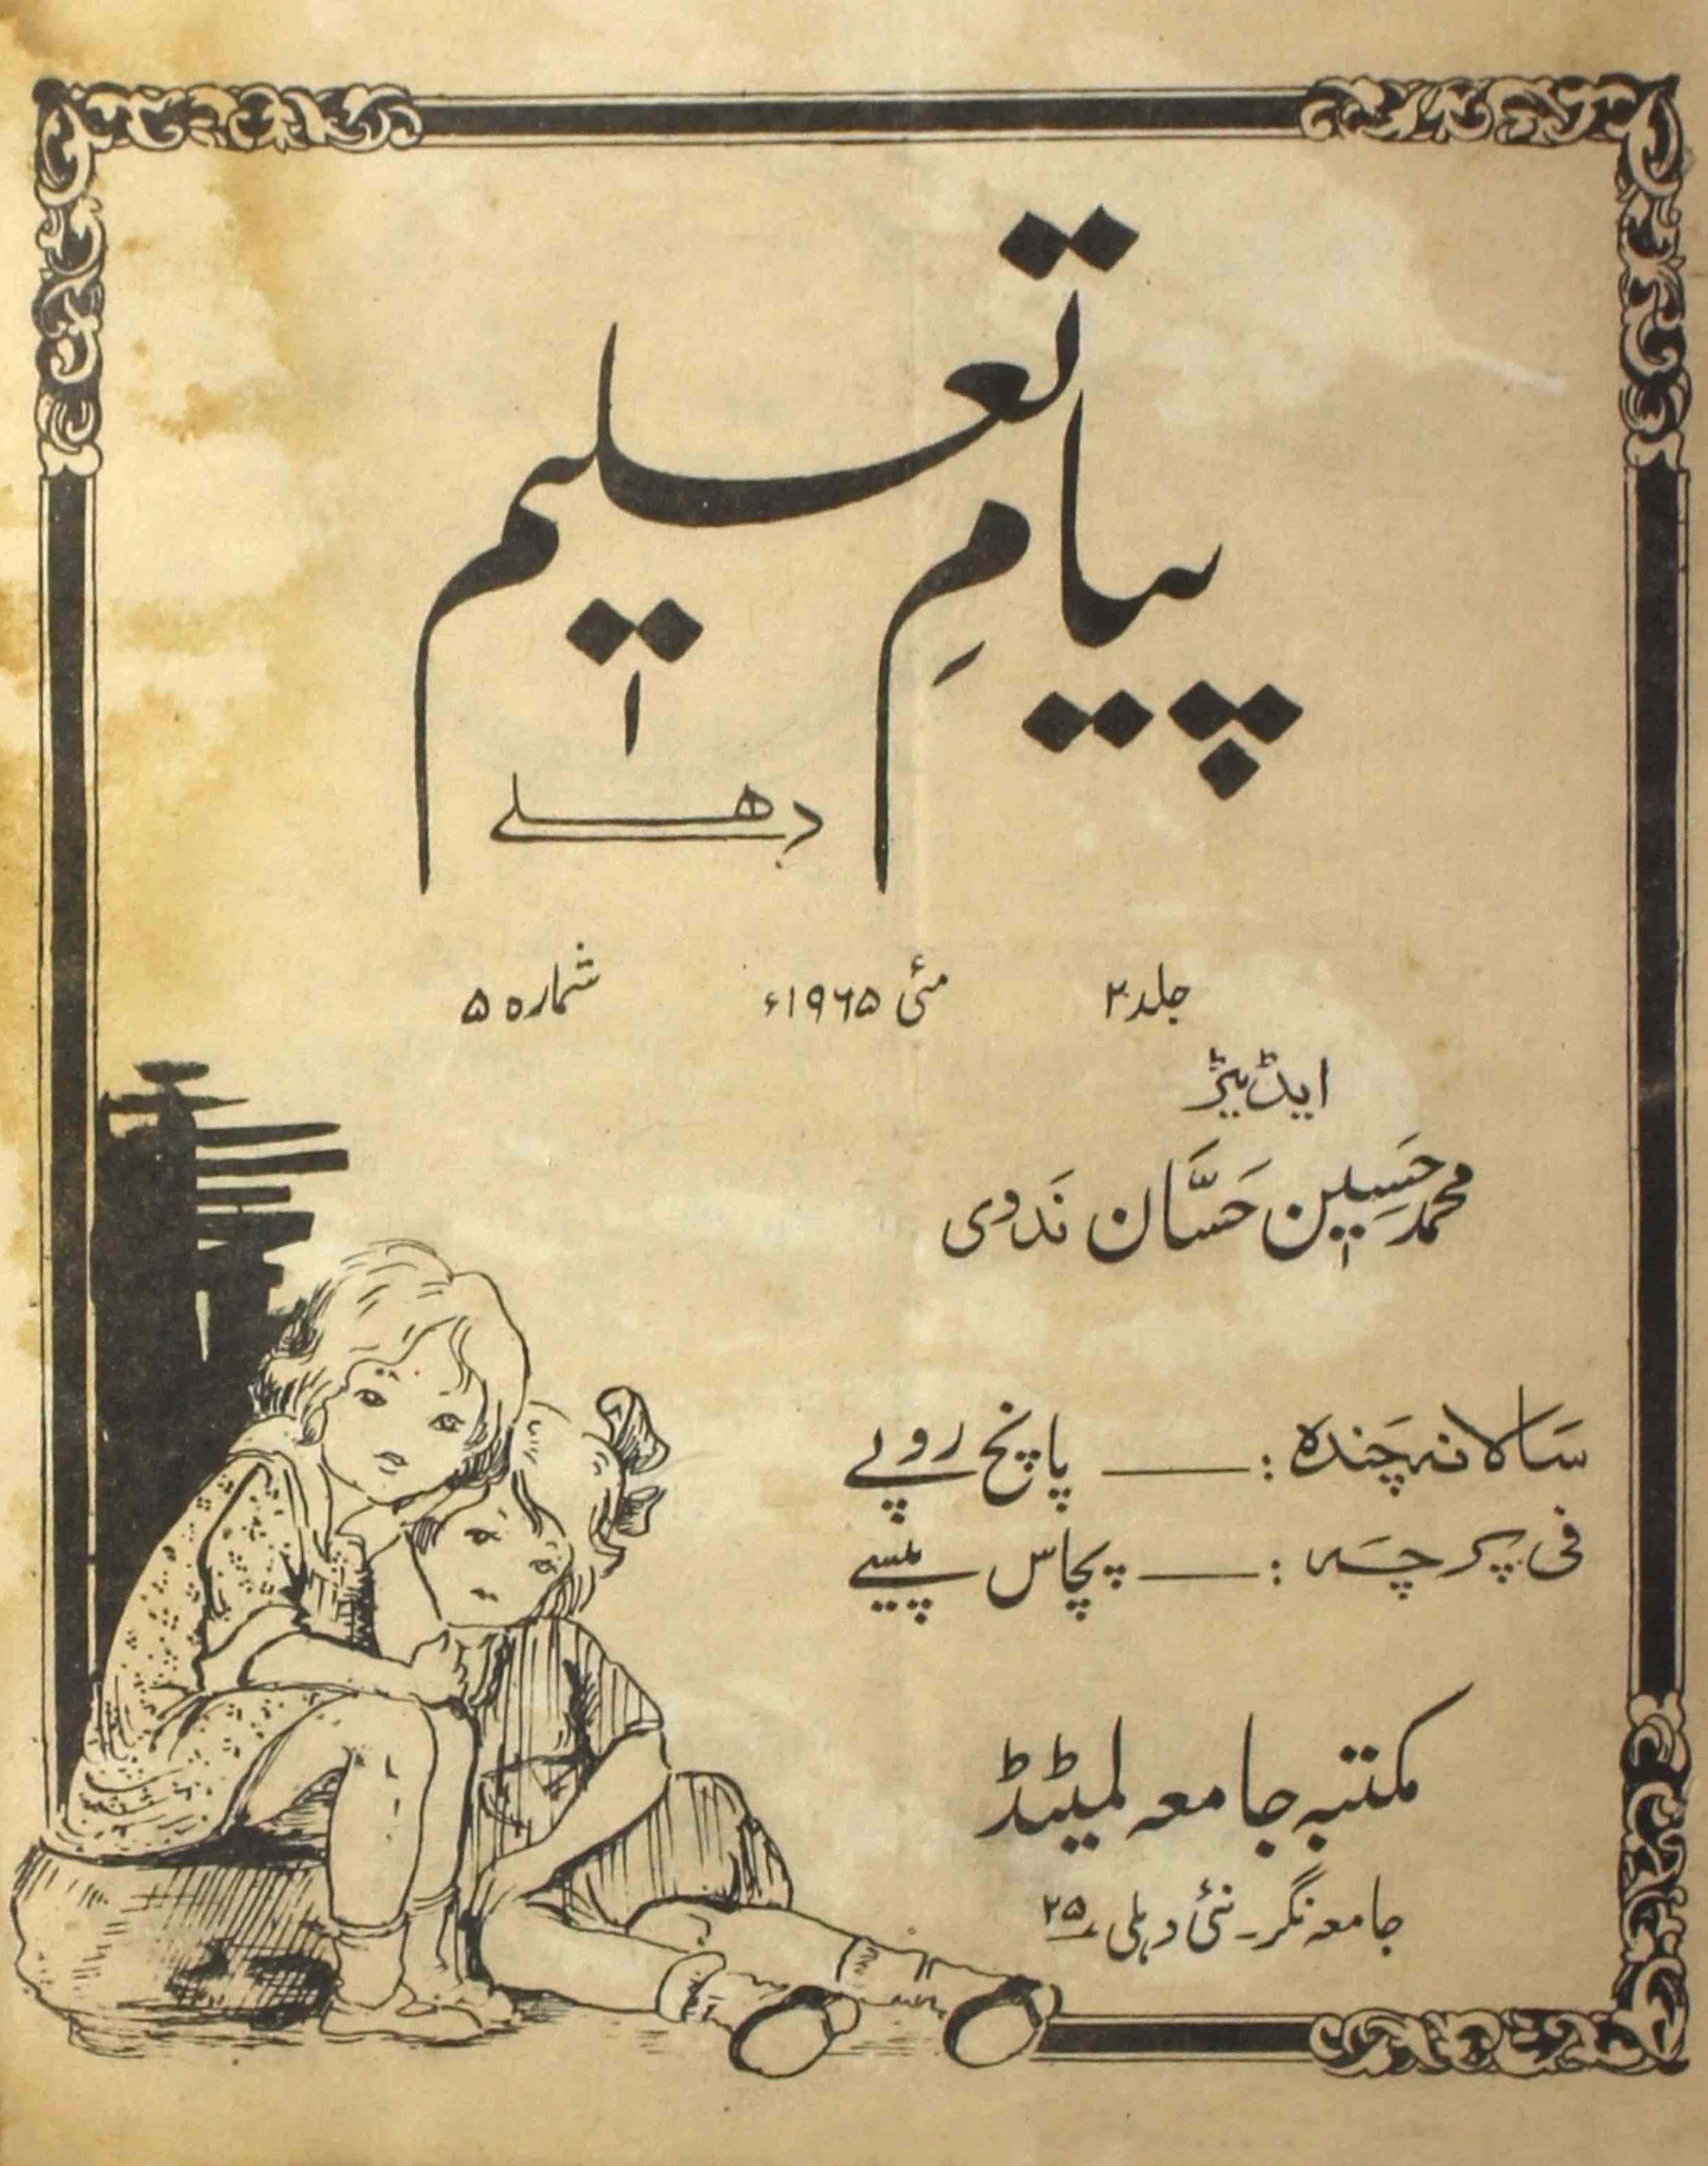 پیامِ تعلیم
دھلے
جلد ۲ مئی ۱۹۶۵ء شمارہ ۵
ایڈیٹر
محمد حَسِین حَسَّان نَدوی
سَالانہ چَندہ : —— پانچ روپے
فی پرچَہ : —— پچاس پیسے
مکتبہ جامعہ لمیٹڈ
جامعہ نگر۔ نئی دہلی ۲۵